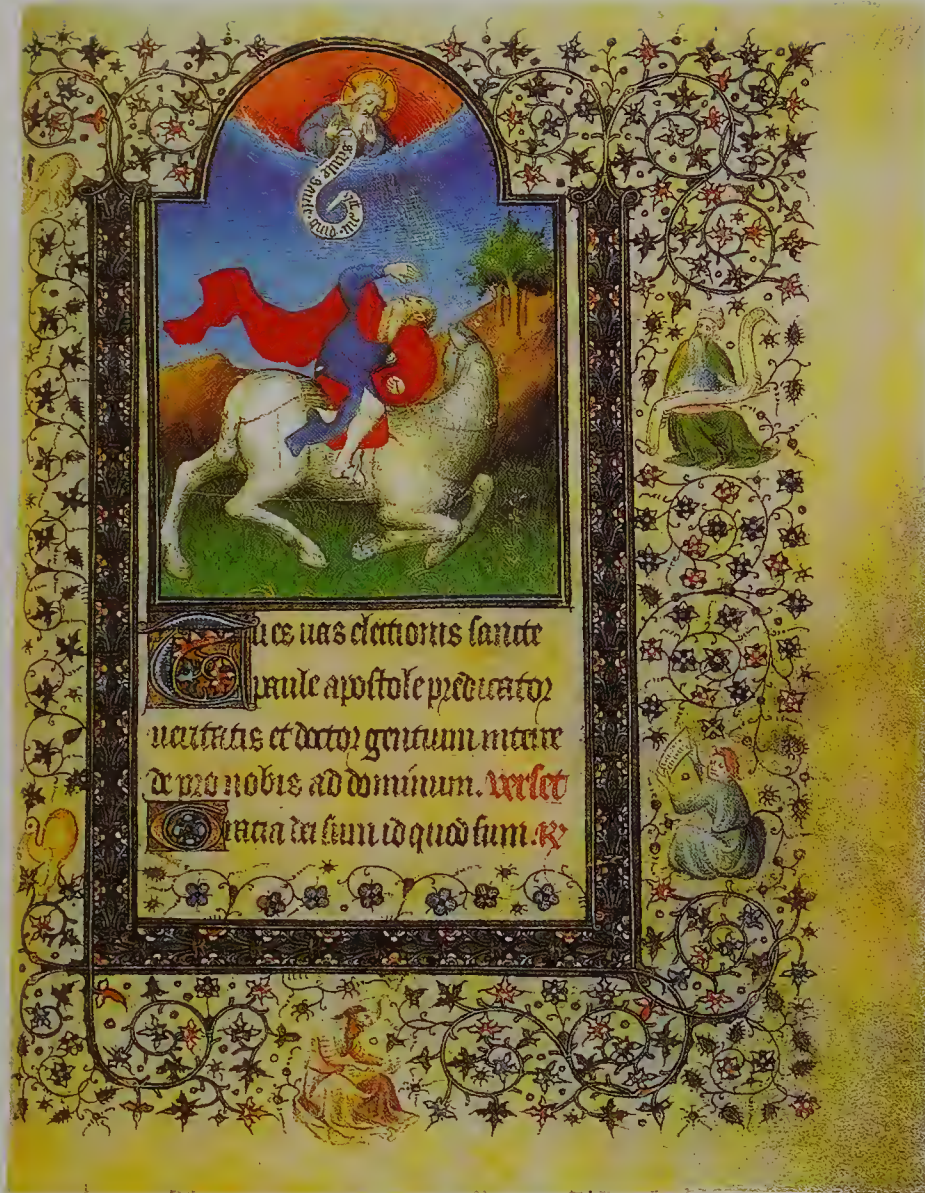 saule saule quid me
Tu es uas electionis sancte
paule apostole predicator
ueritatis et doctor gentium interce
de pro nobis ad dominum. Verset
Gracia dei sum id quod sum. R